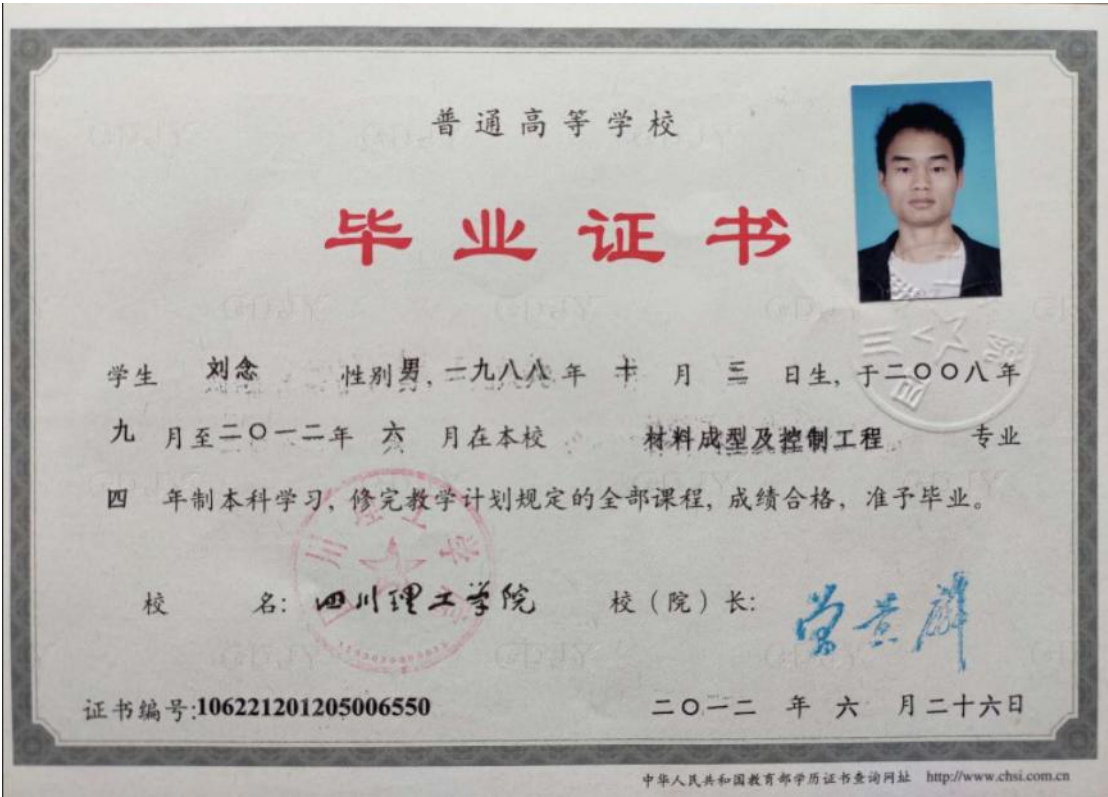 普通高等学校
毕业证书
学生 刘念 性别男，一九八八年 十 月 三 日生，于二〇〇八年
九 月至二〇一二年 六 月在本校 材料成型及控制工程 专业
四 年制本科学习，修完教学计划规定的全部课程，成绩合格，准予毕业。
校 名：四川理工学院 校（院）长：
证书编号:106221201205006550 二〇一二 年 六 月二十六日
中华人民共和国教育部学历证书查询网址 http://www.chsi.com.cn